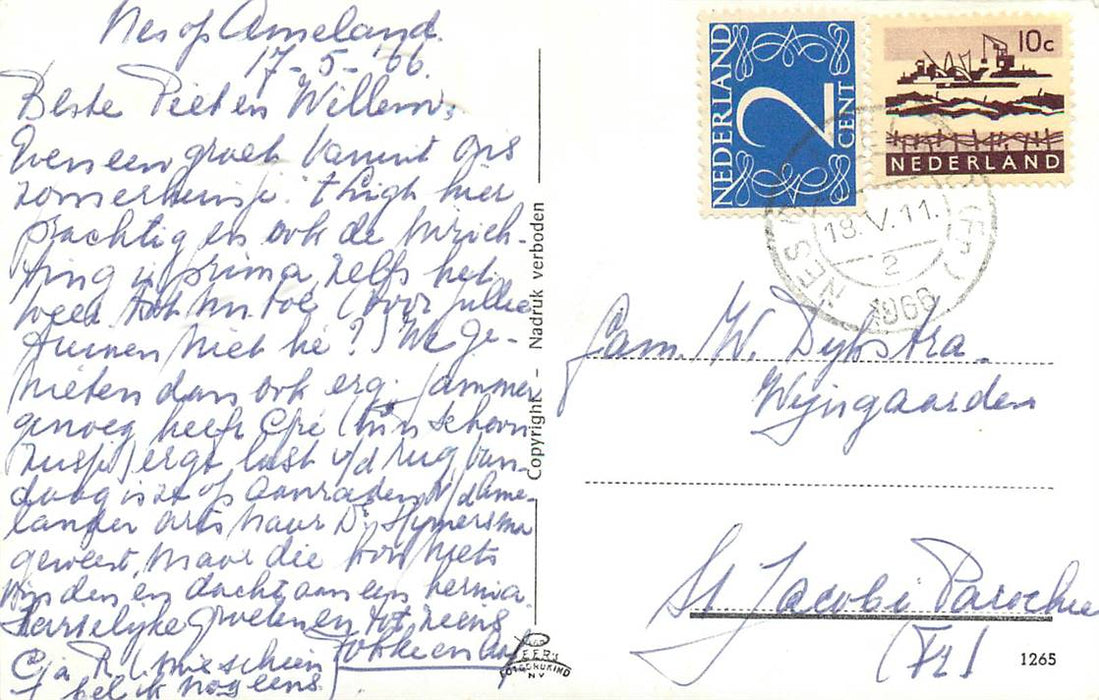 Nes op Ameland.
17-5-'66.
Beste Piet en Willem,
Even een groet vanuit ons
zomerhuisje. 't Ligt hier
prachtig en ook de inrich-
ting is prima, zelfs het
weer
kunnen niet hè?) We ge-
nieten dan ook erg. Jammer
genoeg heeft (m'n schoon
zusje) erge last v/d rug. Van-
daag is ze op aanraden v/d Ame-
lander arts naar Dr.
geweest, maar die kon niets
vinden en dacht aan een hernia.
Hartelijke Groeten en tot ziens
(misschien
bel ik nog eens)
Copyright - Nadruk verboden
NEDERLAND
2
CENT
10c
NEDERLAND
NES
18.V.11.
2
1966
Fam. W. Dijkstra.
Wijngaarden
St Jacobi Parochie
(Fr)
1265